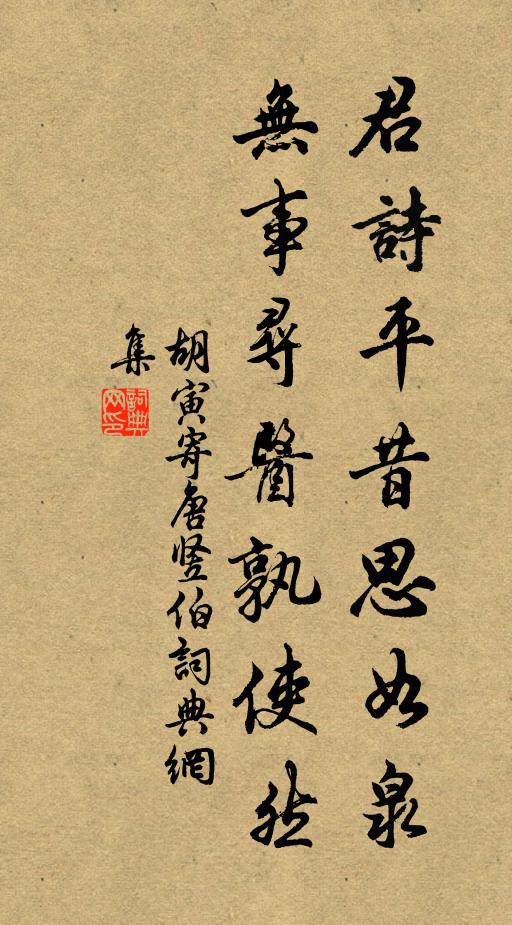 君詩平昔思如泉
無事尋醫孰使然
胡寅寄唐竖伯詞典網
集
詞典网印